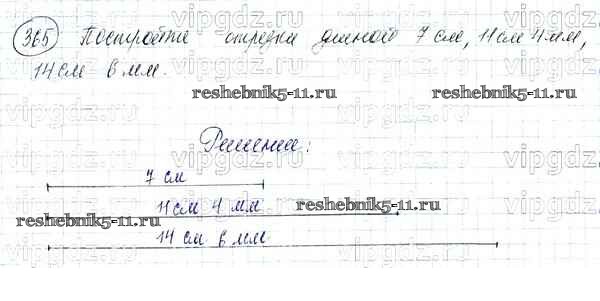 365 Постройте отрезки длиной 7 см, 11 см 4 мм,
14 см 6 мм.
reshebnik5-11.ru
Решение:
7 см
11 см 4 мм
reshebnik5-11.ru
reshebnik5-11.ru
14 см 6 мм
vipgdz.ru